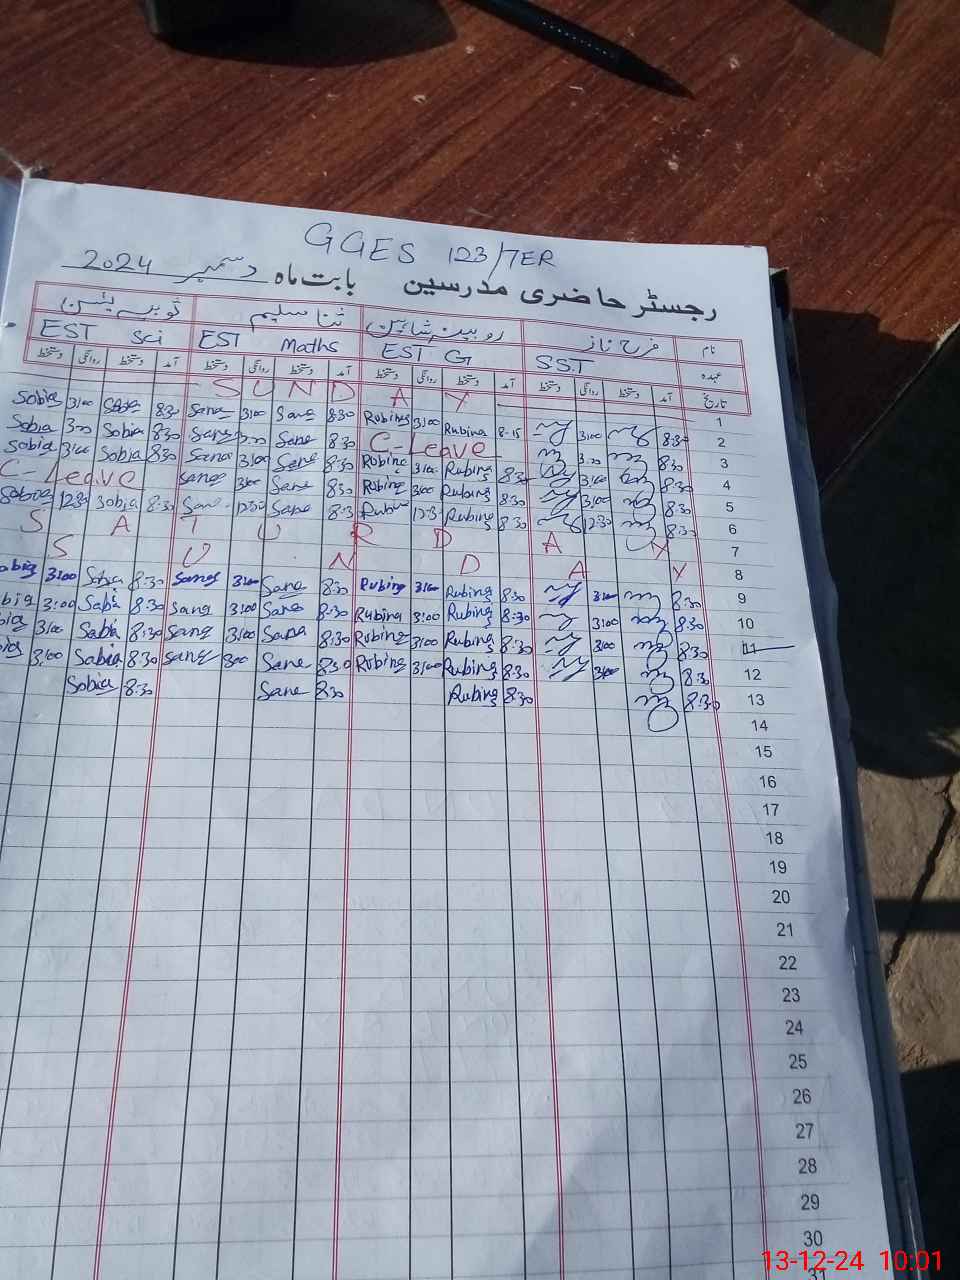 GGES 123/7ER
رجسٹر حاضری مدرسین بابت ماہ دسمبر 2024
نام فرح ناز روبینہ شاہین ثنا سلیم ثوبیہ
عہدہ SST EST G EST Maths EST Sci
تاریخ آمد دستخط روانگی دستخط آمد دستخط روانگی دستخط آمد دستخط روانگی دستخط آمد دستخط روانگی دستخط
SUNDAY 1
Sobia 3:00 8:30 Sana 3:00 Sana 8:30 Rubina 3:00 Rubina 8:15 3:00 8:30 2
Sobia 3:00 Sobia 8:30 Sana Sana 8:30 C-Leave 3:00 8:30 3
Sobia 3:00 Sobia 8:30 Sana 3:00 Sana 8:30 Rubina 3:00 Rubina 8:30 3:00 8:30 4
C-Leave Sana 3:00 Sana 8:30 Rubina 3:00 Rubina 8:30 3:00 8:30 5
Sobia 12:30 Sobia 8:30 Sana 12:30 Sana 8:30 Rubina 12:30 Rubina 8:30 12:30 8:30 6
SATURDAY 7
SUNDAY 8
3:00 Sobia 8:30 Sana 3:00 Sana 8:30 Rubina 3:00 Rubina 8:30 3:00 8:30 9
3:00 Sobia 8:30 Sana 3:00 Sana 8:30 Rubina 3:00 Rubina 8:30 3:00 8:30 10
3:00 Sobia 8:30 Sana 3:00 Sana 8:30 Rubina 3:00 Rubina 8:30 3:00 8:30 11
3:00 Sobia 8:30 Sana 3:00 Sana 8:30 Rubina 3:00 Rubina 8:30 3:00 8:30 12
Sobia 8:30 Sana 8:30 Rubina 8:30 8:30 13
14
15
16
17
18
19
20
21
22
23
24
25
26
27
28
29
30
31
13-12-24 10:01